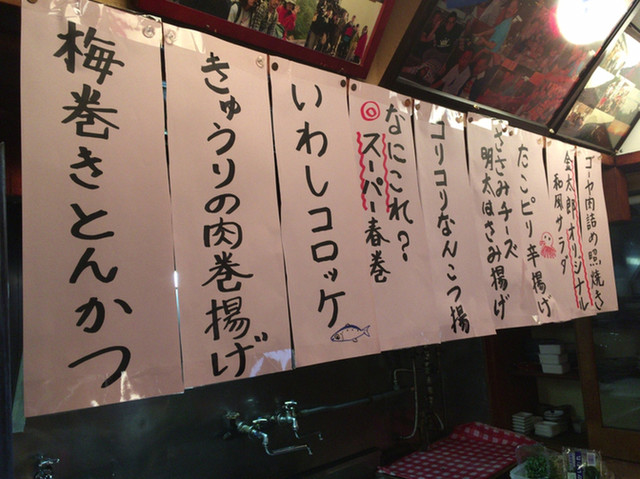 梅巻きとんかつ
きゅうりの肉巻揚げ
いわしコロッケ
なにこれ?
◎スーパー春巻
コリコリなんこつ揚
ささみチーズ
明太はさみ揚げ
たこピリ辛揚げ
金太郎オリジナル
和風サラダ
ゴーヤ肉詰め照焼き